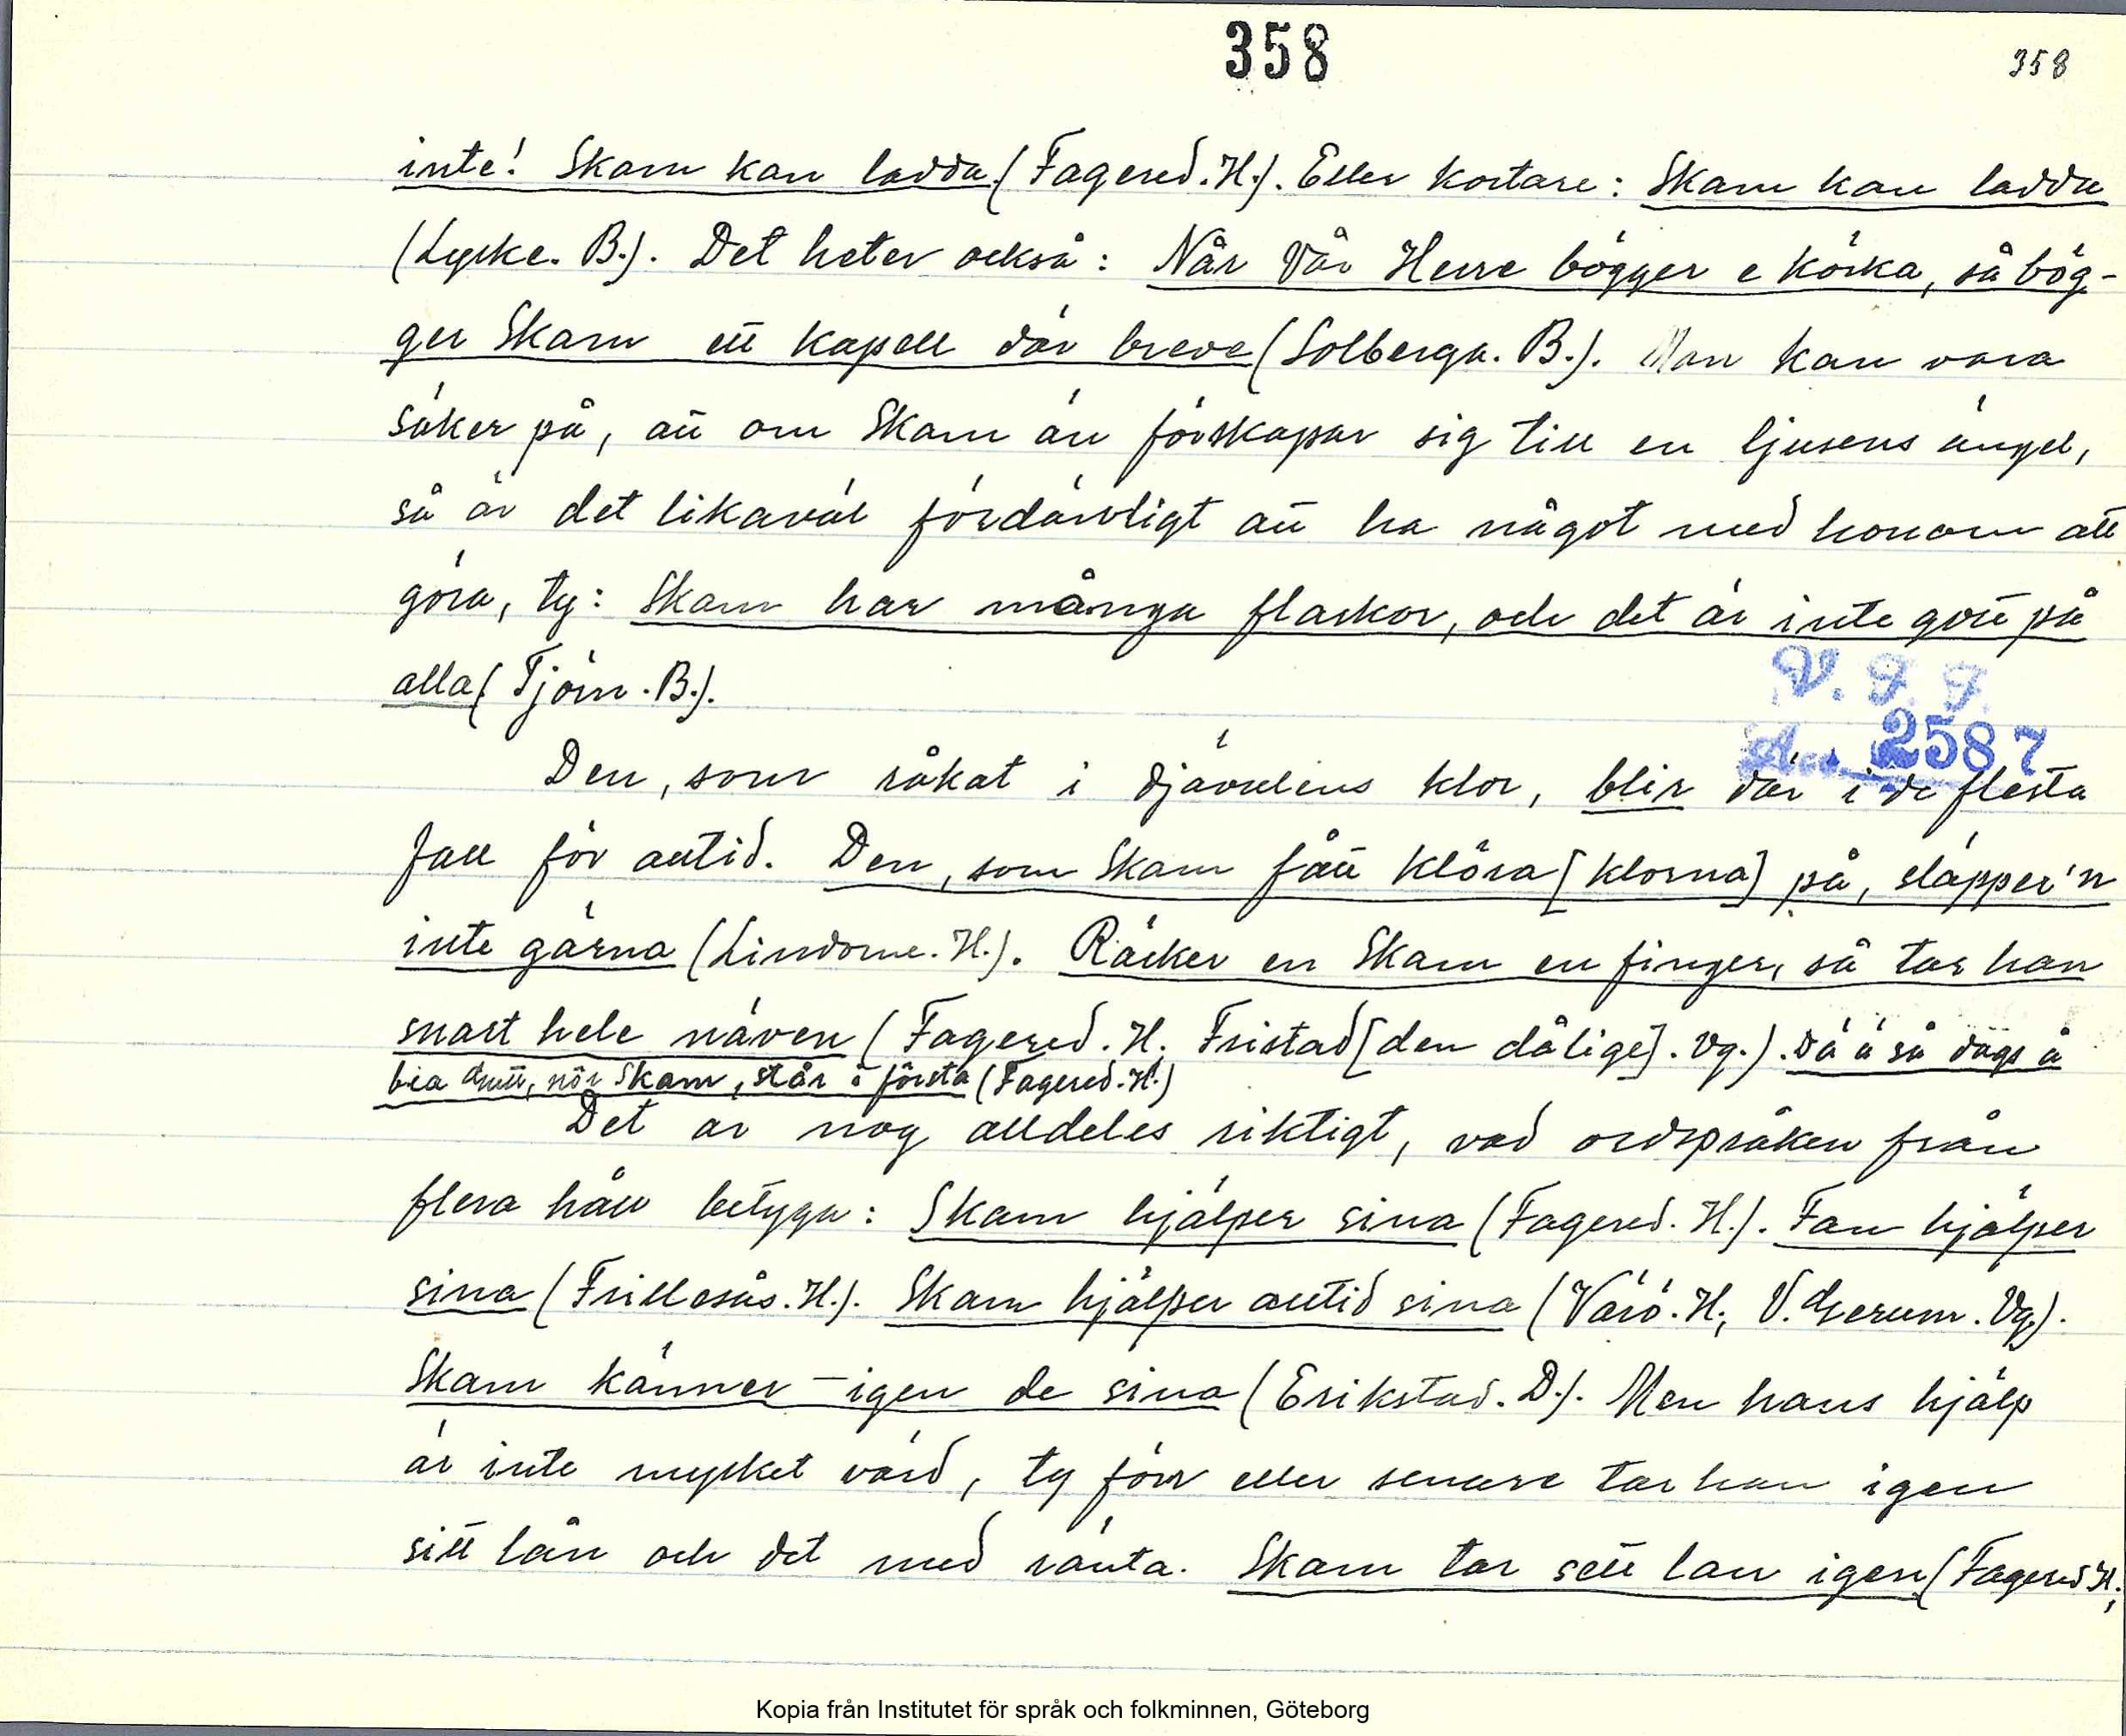 358
358
inte! Skam kan ladda (Fagered. H.). Eller kortare: Skam kan ladda
(Lycke. B.). Det heter också: Når Vår Herre bögger e körka, så bög-
ger Skam ett kapell där breve (Solberga. B.). Man kan vara
säker på, att om Skam än förskapar sig till en ljusens ängel,
så är det likaväl fördärvligt att ha något med honom att
göra, ty: Skam har många flaskor, och det är inte gott på
alla (Tjörn. B.).
V. F. F.
Acc. 2587
Den, som råkat i djävulens klor, blir där i de flesta
fall för alltid. Den, som Skam fått klöra [klorna] på, släpper'n
inte gärna (Lindome. H.). Räcker en Skam en finger, så tar han
snart hele näven (Fagered. H. Fristad [den dålige]. Vg.). Dä ä så dags å
bea Gutt, når Skam, står i första (Fagered. H.)
Det är nog alldeles riktigt, vad ordspråken från
flera håll betyga: Skam hjälper sina (Fagered. H.). Fan hjälper
sina (Frillesås. H.). Skam hjälper alltid sina (Värö. H.; V. Gerum. Vg.).
Skam känner igen de sina (Erikstad. D.). Men hans hjälp
är inte mycket värd, ty förr eller senare tar han igen
sitt lån och det med ränta. Skam tar sett lan igen (Fagered H.;
Kopia från Institutet för språk och folkminnen, Göteborg